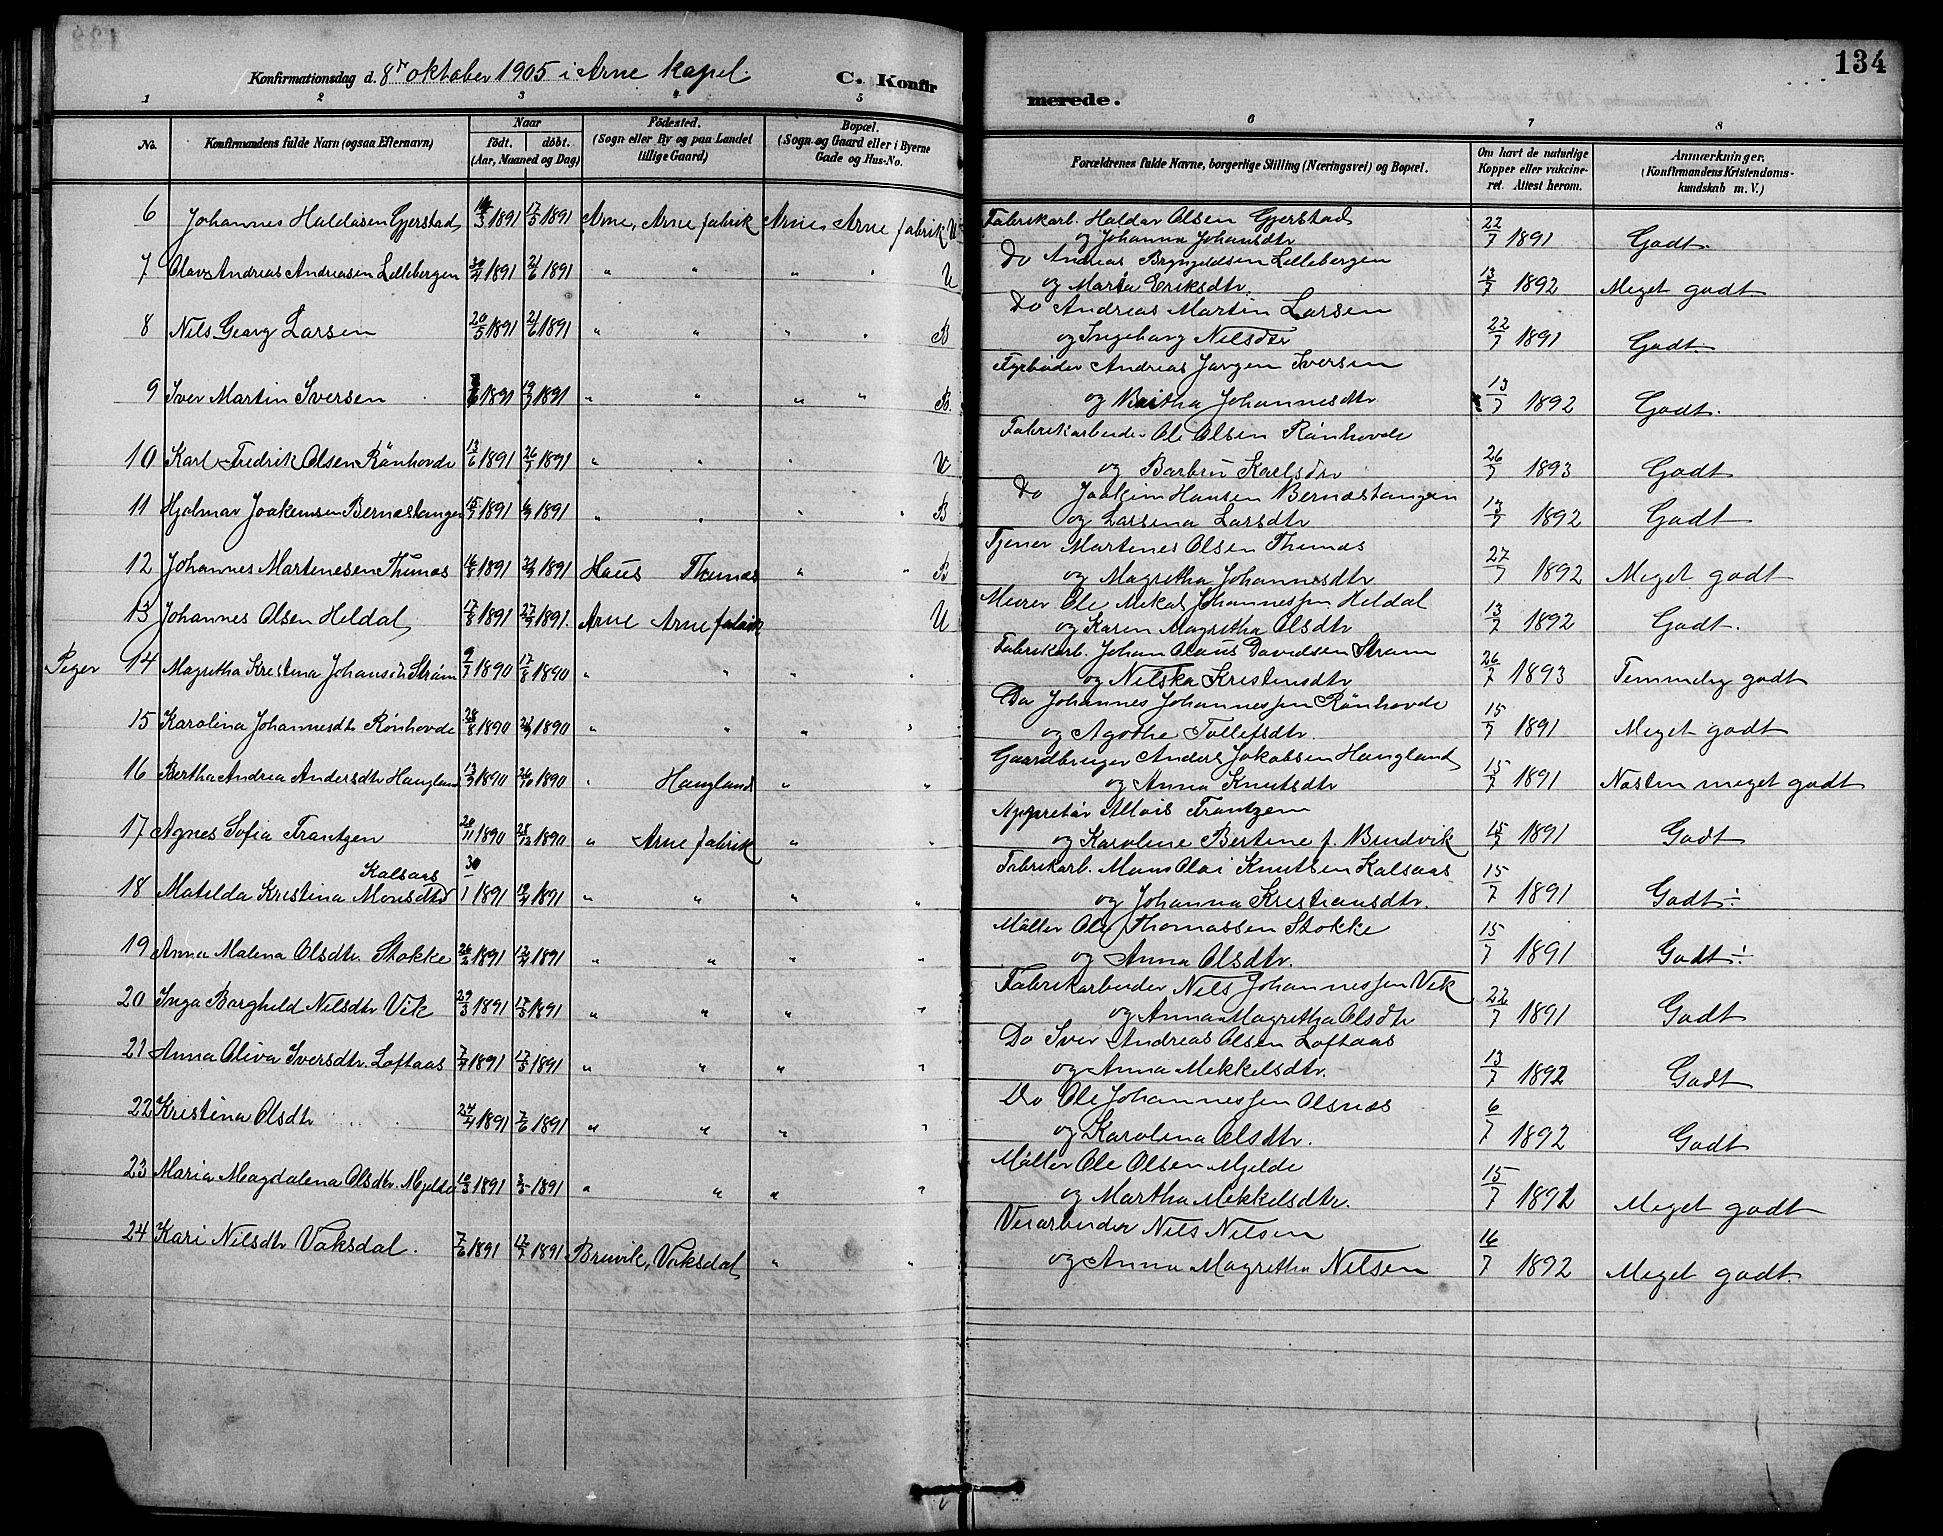 134
Konfirmationsdag d. 8de oktober 1905 i Arne kapel. C. Konfirmerede.
1 2 3 4 5 6 7 8
No. Konfirmandens fulde Navn (ogsaa Efternavn) Naar født. døbt. (Aar, Maaned og Dag) Fødested. (Sogn eller By og paa Landet tillige Gaard) Bopæl. (Sogn og Gaard eller i Byerne Gade og Hus-No. Forældrenes fulde Navne, borgerlige Stilling (Næringsvei) og Bopæl. Om havt de naturlige Kopper eller vakcineret. Attest herom. Anmærkninger. (Konfirmandens Kristendomskundskab m. V.)
6 Johannes Haldorsen Gjerstad 3 1891 17/5 1891 Arne, Arne fabrik Arne, Arne fabrik U Fabrikarb. Haldor Olsen Gjerstad 22/7 1891 Godt.
og Johanna Johansdtr
7 Olav Andreas Andreasen Lillebergen 30/4 1891 21/6 1891 " " " " U Do Andreas Brynjeldsen Lillebergen 13/7 1892 Meget godt
og Maria Eriksdtr.
8 Nils Georg Larsen 20/5 1891 21/6 1891 " " " " B Do Andreas Martin Larsen 22/7 1891 Godt.
og Ingeborg Nilsdtr
9 Iver Martin Iversen 6 1891 19/7 1891 " " " " B. Fyrbøder Andreas Jørgen Iversen 13/7 1892 Godt.
og Britha Johannesdtr
10 Karl Fredrik Olsen Rönhovde 13/6 1891 26/7 1891 " " " U Fabrikarbeider Ole Olsen Rönhovde 26/7 1893 Godt
og Barbru Karlsdtr
11 Hjalmar Joakimsen Bernæstangen 15/7 1891 1891 " " " " B Do Joakim Hansen Bernæstangen 13/7 1892 Godt
og Larsina Larsdtr
12 Johannes Martinesen Thunæs 16/8 1891 1891 Haus Thunæs " " B Tjener Martines Olsen Thunæs 27/7 1892 Meget godt
og Magretha Johannesdtr
13 Johannes Olsen Heldal 17/8 1891 27/9 1891. Arne Arne fabrik U Murer Ole Mikal Johannessen Heldal 13/7 1892 Godt.
og Karen Magretha Olsdtr
Piger 14 Magretha Kristina Johansdtr Ström 9/7 1890 17/8 1890 " " " " Fabrikarb. Johan Claus Davidsen Ström 26/7 1893 Temmelig godt
og Nilska Kristensdtr
15 Karolina Johannesdtr Rönhovde 28/8 1890 1890 " " " " Do Johannes Johannessen Rönhovde 15/7 1891 Meget godt
og Agothe Tollefsdtr.
16 Bertha Andrea Andersdtr Haugland 13/9 1890 26/10 1890 " Haugland " " Gaardbruger Anders Jakobsen Haugland 15/7 1891 Næsten meget godt
og Anna Knutsdtr
17 Agnes Sofia Frantzen 20/11 1890 28/12 1890 " Arne fabrik " " Appretör Alois Frantzen 15/7 1891 Godt
og Karoline Bertine f. Brudvik
Kalsaas
18 Matilda Kristina Monsdtr 30/1 1891 1891 " " " " Fabrikarb. Mons Olai Knutsen Kalsaas 15/7 1891 Godt ÷
og Johanna Kristiansdtr.
19 Anna Malena Olsdtr. Stokke 26/2 1891 12/4 1891 " " " " Möller Ole Thomassen Stokke 15/7 1891 Godt ÷
og Anna Olsdtr.
20 Inga Borghild Nilsdtr Vik 29/3 1891 17/5 1891 " " " " Fabrikarbeider Nils Johannessen Vik 22/7 1891 Godt
og Anna Magretha Olsdtr
21 Anna Oliva Iversdtr. Loftaas 7/4 1891 17/5 1891 " " " " Do Iver Andreas Olsen Loftaas 13/7 1892 Godt
og Anna Mikkelsdtr.
22 Kristina Olsdtr 24/4 1891 7/6 1891 " " " " Do Ole Johannessen Olsnæs 6/7 1892 Godt
og Karolina Olsdtr.
23 Maria Magdalena Olsdtr. Mjelde 10/3 1891 3/5 1891 " " " " Möller Ole Olsen Mjelde 15/7 1891 Meget godt
og Martha Mikkelsdtr.
24 Kari Nilsdtr Vaksdal. 7/6 1891 12/7 1891 Bruvik, Vaksdal " " Veiarbeider Nils Nilsen 16/7 1892 Meget godt
og Anna Magretha Nilsen